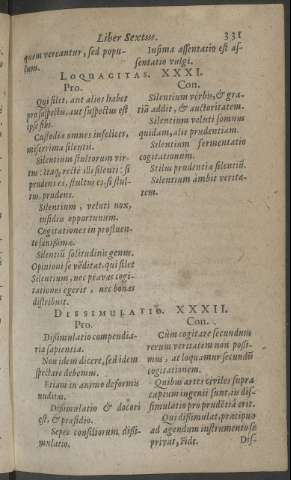 Liber Sextus. 331
quam vereantur, sed popu-
lum.
Infima assentatio est as-
sentatio vulgi.
LOQUACITAS. XXXI.
Pro.
Qui silet, aut alios habet
pro suspectis, aut suspectus est
ipse sibi.
Custodiæ omnes infelices,
miserrima silentii.
Silentium stultorum vir-
tus: itaq; recte ille silenti: si
prudens es, stultus es; si stul-
tus, prudens.
Silentium, veluti nox,
insidiis opportunum.
Cogitationes in profluen-
te sanissimæ.
Silentiū solitudinis genus.
Opinioni se vēditat, qui silet
Silentium, nec pravas cogi-
tationes egerit, nec bonas
distribuit.
Con.
Silentium verbis, & gra-
tiā addit, & auctoritatem.
Silentium veluti somnus
quidam, alit prudentiam.
Silentium fermentatio
cogitationum.
Stilus prudentiæ silentiū.
Silentium ambit verita-
tem.
DISSIMULATIO. XXXII.
Pro.
Dissimulatio compendia-
ria sapientia.
Non idem dicere, sed idem
spectare debemus.
Etiam in animo deformis
nuditas.
Dissimulatio & decori
est, & præsidio.
Sepes consiliorum, dissi-
mulatio.
Con.
Cùm cogitare secundum
rerum veritatem non possi-
mus, at loquamur secundū
cogitationem.
Quibus artes civiles supra
captum ingenii sunt, iis dis-
simulatio pro prudētiâ erit.
Qui dissimulat, præcipuo
ad agendum instrumento se
privat, Fide.
Dis-